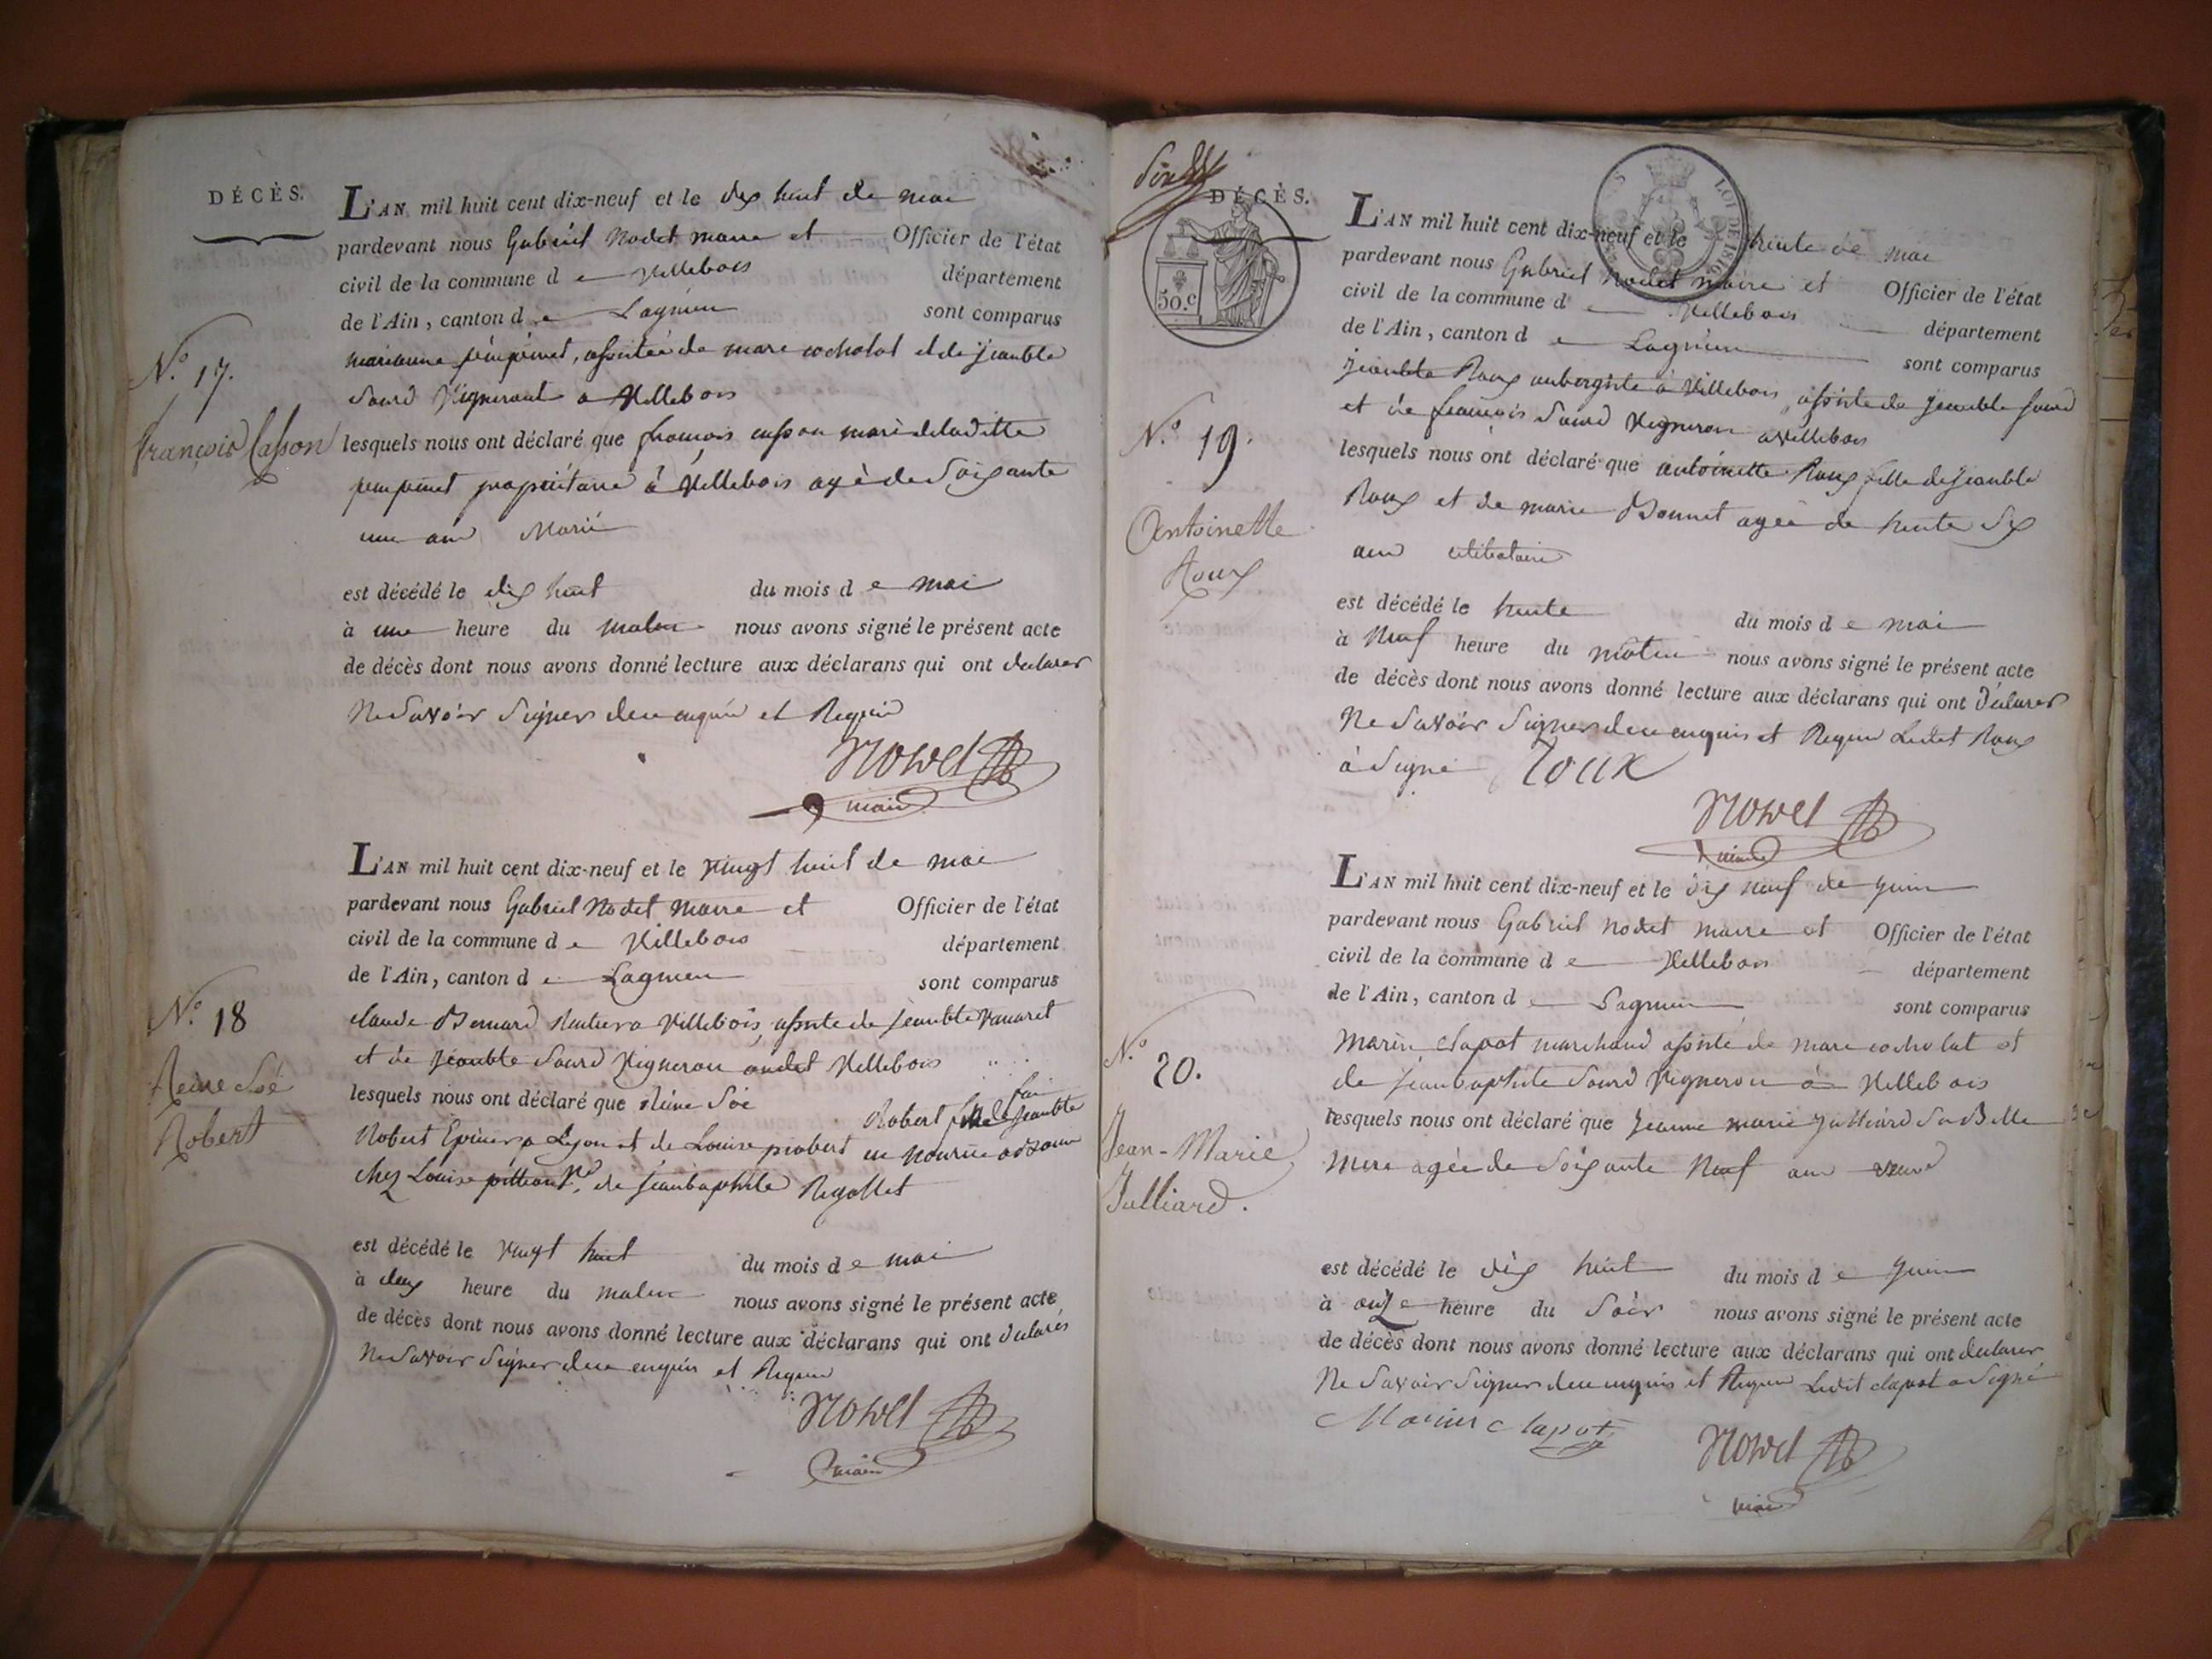 DÉCÈS.
L'AN mil huit cent dix-neuf et le dix huit de mai
pardevant nous Gabriel Nodet maire et Officier de l'état
civil de la commune d e Villebois département
de l'Ain, canton d e Lagnieu sont comparus
marianne assistée de marc cocholat et de jeanbte
Sourd Vignerons a Villebois
N.º 17.
François Casson
lesquels nous ont déclaré que francois casson mari de laditte
propriétaire à Villebois agé de Soixante
une ans Marié
est décédé le dix huit du mois d e mai
à une heure du matin nous avons signé le présent acte
de décès dont nous avons donné lecture aux déclarans qui ont declarer
Ne Savoir Signer de ce enquis et Requis
Nodet
maire
L'AN mil huit cent dix-neuf et le vingt huit de mai
pardevant nous Gabriel Nodet maire et Officier de l'état
civil de la commune d e Villebois département
de l'Ain, canton d e Lagnieu sont comparus
N.º 18
Reine Soé
Robert
claude Bernard Rentier a Villebois, assisté de jeanbte Vanaret
et de jeanbte Sourd Vigneron audit Villebois
lesquels nous ont déclaré que Reine Soé Robert fille de jeanbte
Robert Epicier a Lyon et de Louise probert en nourrice
chez Louise de jeanbaptiste Rigollet
est décédé le vingt huit du mois d e mai
à deux heure du matin nous avons signé le présent acte
de décès dont nous avons donné lecture aux déclarans qui ont declarer
Ne Savoir Signer de ce enquis et Requis
Nodet
maire
DÉCÈS.
50.c
LOI DE 1816
L'AN mil huit cent dix-neuf et le trente de mai
pardevant nous Gabriel Nodet maire et Officier de l'état
civil de la commune d e Villebois département
de l'Ain, canton d e Lagnieu sont comparus
jeanbte Roux aubergiste à Villebois, assisté de jeanbte Sourd
et de françois Sourd Vigneron a villebois
N.º 19.
Antoinette
Roux
lesquels nous ont déclaré que antoinette Roux fille de jeanbte
Roux et de marie Bonnet agée de trente Six
ans celibataire
est décédé le trente du mois d e mai
à Neuf heure du matin nous avons signé le présent acte
de décès dont nous avons donné lecture aux déclarans qui ont déclarer
Ne Savoir Signer de ce enquis et Requis Ledit Roux
à Signé Roux
Nodet
maire
L'AN mil huit cent dix-neuf et le dix neuf de juin
pardevant nous Gabriel Nodet maire et Officier de l'état
civil de la commune d e Villebois département
de l'Ain, canton d e Lagnieu sont comparus
N.º 20.
Jean-Marie
Julliard.
Marin Clapot marchand assisté de marc cocholat et
de jeanbaptiste Sourd Vigneron à Villebois
lesquels nous ont déclaré que jeanne marie julliard Sa Belle
Mere agée de Soixante Neuf ans veuve
est décédé le dix huit du mois d e juin
à onze heure du Soir nous avons signé le présent acte
de décès dont nous avons donné lecture aux déclarans qui ont declarer
Ne Savoir Signer de ce enquis et Requis Ledit clapot a Signé
Marin Clapot
Nodet
maire